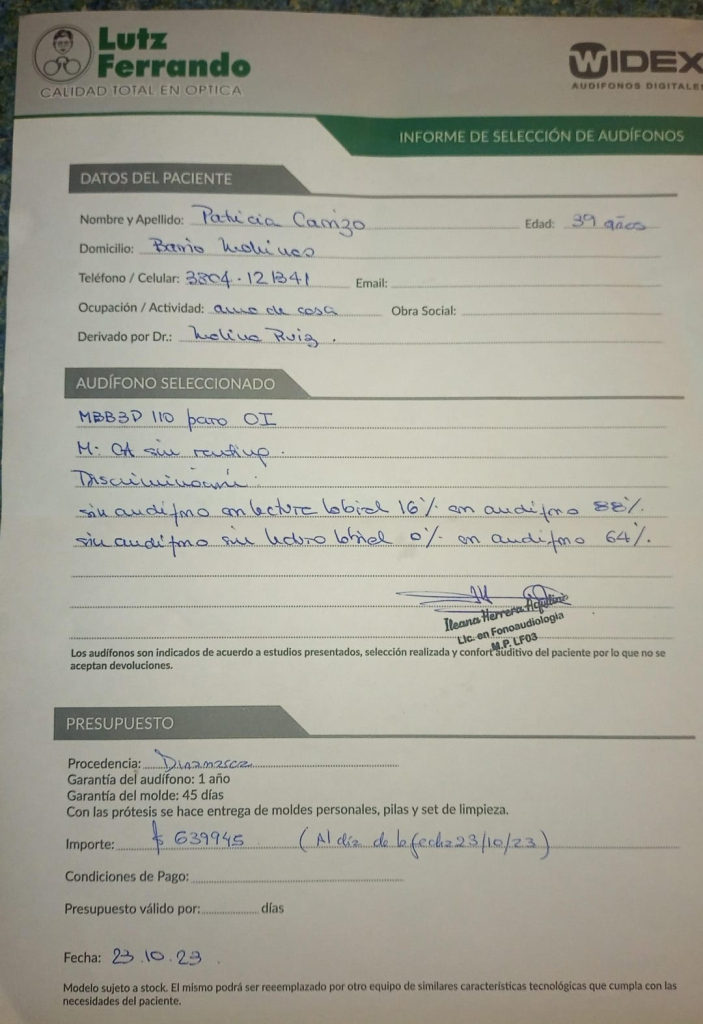 Lutz
Ferrando
CALIDAD TOTAL EN OPTICA
WIDEX
AUDIFONOS DIGITALES
INFORME DE SELECCIÓN DE AUDÍFONOS
DATOS DEL PACIENTE
Nombre y Apellido: Patricia Carrizo Edad: 39 años
Domicilio: Barrio Molinos
Teléfono / Celular: 3804-121341 Email:
Ocupación / Actividad: ama de casa Obra Social:
Derivado por Dr.: Molina Ruiz.
AUDÍFONO SELECCIONADO
MBB3D 110 para OI
M: CA sin
Discriminación:
sin audífono con lectura labial 16% con audífono 88%.
sin audífono sin lectura labial 0% con audífono 64%.
Ileana Herrera
Lic. en Fonoaudiología
M.P. LF03
Los audífonos son indicados de acuerdo a estudios presentados, selección realizada y confort auditivo del paciente por lo que no se
aceptan devoluciones.
PRESUPUESTO
Procedencia: Dinamarca
Garantía del audífono: 1 año
Garantía del molde: 45 días
Con las prótesis se hace entrega de moldes personales, pilas y set de limpieza.
Importe: $ 639945 (Al día de la fecha 23/10/23)
Condiciones de Pago:
Presupuesto válido por: días
Fecha: 23.10.23.
Modelo sujeto a stock. El mismo podrá ser reeemplazado por otro equipo de similares características tecnológicas que cumpla con las
necesidades del paciente.